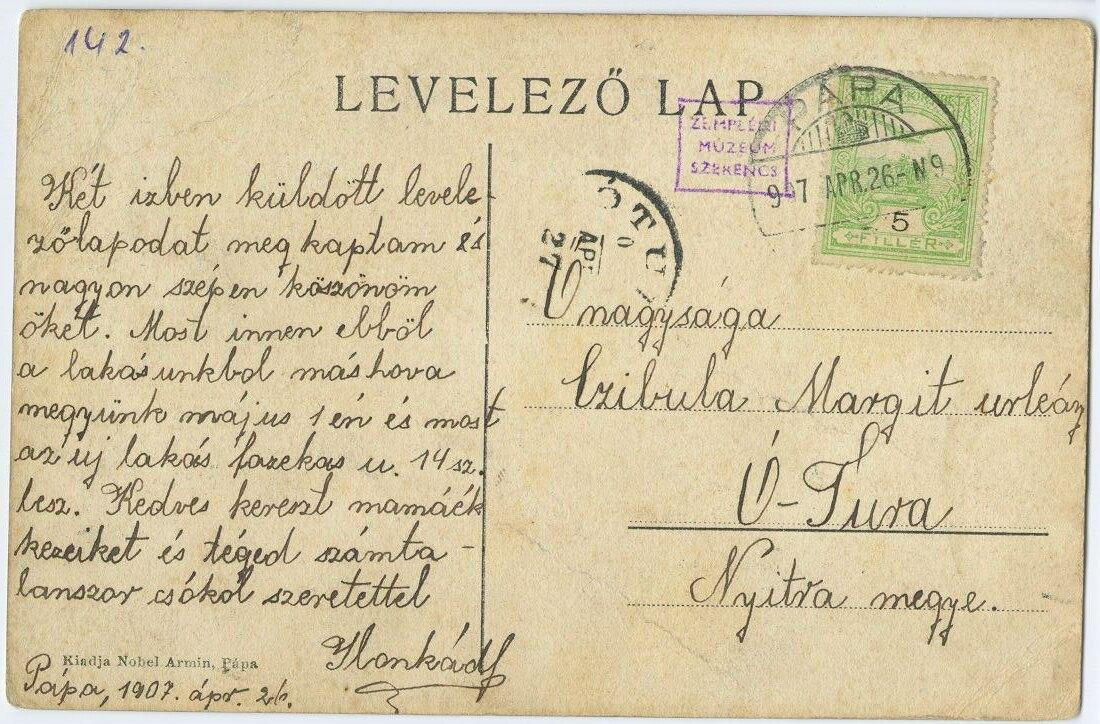 142.
LEVELEZŐ LAP
ZEMPLÉNI
MÚZEUM
SZERENCS
PÁPA
907 APR.26-N9
5
FILLÉR
ÓTU
AP
27
Két izben küldött levele-
zőlapodat megkaptam és
nagyon szépen köszönöm
őket. Most innen ebből
a lakásunkbol máshova
megyünk május 1én és most
az új lakás fazekas u. 14 sz.
lesz. Kedves kereszt mamáék
kezeiket és téged számta-
lanszor csókol szeretettel
Ilonkád
Kiadja Nobel Armin, Pápa
Pápa, 1907. ápr. 26.
Önagysága
Czibula Margit urleány
Ó-Tura
Nyitra megye.